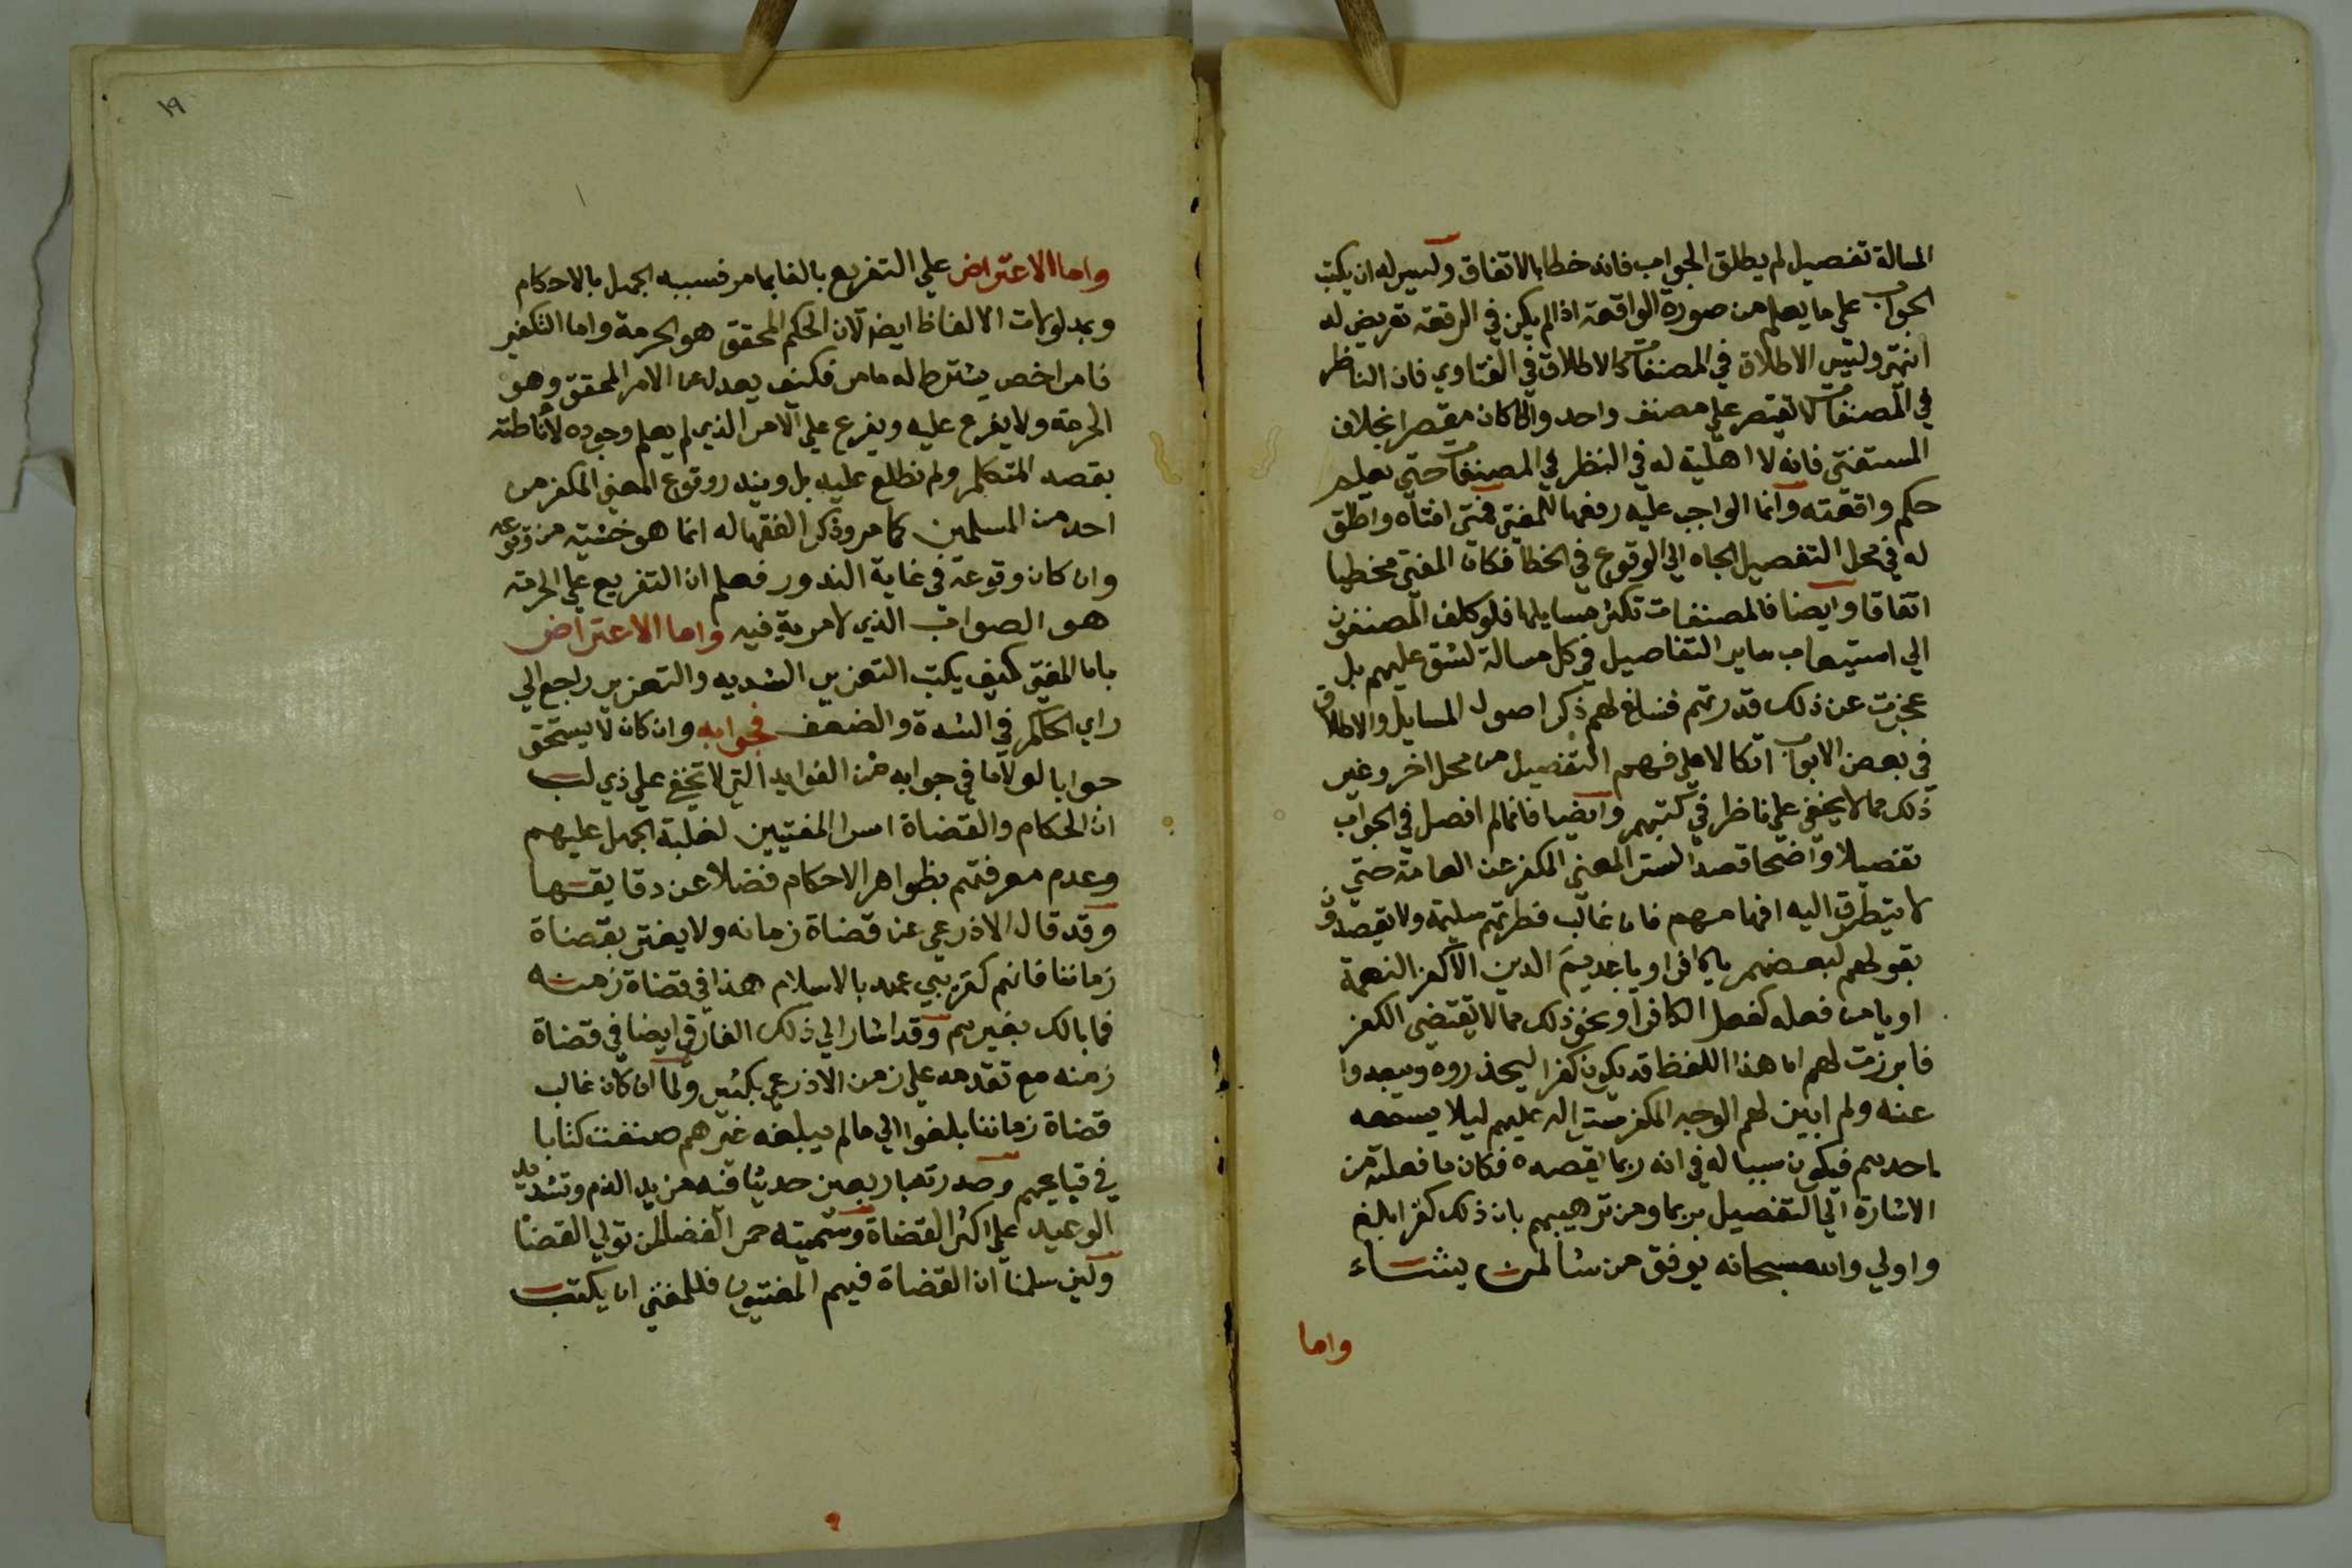 المسالة تفصيل لم يطلق الجواب فانه خطا بالاتفاق وليس له ان يكتب
الجواب على ما يعلم من صورة الواقعة اذا لم يكن في الرقعة تعريض له
انتهى وليس الاطلاق في المصنفات كالاطلاق في الفتاوي فان الناظر
في المصنفات لا يقتصر على مصنف واحد والا كان مقصرا بخلاف
المستفتي فانه لا اهلية له في النظر في المصنفات حتى يعلم
حكم واقعته وانما الواجب عليه رفعها للمفتي فمتى افتاه واطلق
له في محل التفصيل الجاه الي الوقوع في الخطا فكان المفتي مخطيا
اتفاقا وايضا فالمصنفات تكثر مسايلها فلو كلف المصنفون
الي استيعاب ساير التفاصيل في كل مسالة لشق عليهم بل
عجزت عن ذلك قدرتهم فساغ لهم ذكر اصول المسايل والاطلاق
في بعض الابواب اتكالا على فهم التفصيل من محل اخر وغير
ذلك مما لا يخفى على ناظر في كتبهم وايضا فانما لم افصل في الجواب
تفصيلا واضحا قصدا لستر المعنى المكفر عن العامة حتى
لا يتطرق اليه افهامهم فان غالب فطرتهم سليمة ولا يقصدون
بقولهم لبعضهم يا كافر او يا عديم الدين الا كفر النعمة
او يا من فعله كفعل الكافر او نحو ذلك مما لا يقتضي الكفر
فابرزت لهم ان هذا اللفظ قد يكون كفرا ليحذروه ويبعدوا
عنه ولم ابين لهم الوجه المكفر سترا له عليهم ليلا يسمعه
احدهم فيكون سببا له في انه ربما يقصده فكان ما فعلته من
الاشارة الي التفصيل بربما ومن ترهيبهم بان ذلك كفر ابلغ
واولي والله سبحانه يوفق من شا لمن يشاء
واما
١٩
واما الاعتراض علي التفريع بالفا بما مر فسببه الجهل بالاحكام
وبمدلولات الالفاظ ايضا لان الحكم المحقق هو الحرمة واما التكفير
فامر اخص يشترط له ما مر فكيف يعدل عن الامر المحقق وهو
الحرمة ولا يفرع عليه ويفرع علي الامر الذي لم يعلم وجوده لاناطته
بقصد المتكلم ولم نطلع عليه بل ويندر وقوع المعنى المكفر من
احد من المسلمين كما مر وذكر الفقها له انما هو خشية من وقوعه
وان كان وقوعه في غاية الندور فعلم ان التفريع علي الحرمة
هو الصواب الذي لا مرية فيه واما الاعتراض
بان المفتي كيف يكتب التعزير الشديد والتعزير راجع الي
راي الحاكم في الشدة والضعف فجوابه وان كان لا يستحق
جوابا لولا ما في جوابه من الفوايد التي لا تخفى على ذي لب
ان الحكام والقضاة اسرا المفتيين لغلبة الجهل عليهم
وعدم معرفتهم بظواهر الاحكام فضلا عن دقايقها
وقد قال الاذرعي عن قضاة زمانه ولا يغتر بقضاة
زماننا فانهم كقريبي عهد بالاسلام هذا في قضاة زمنه
فما بالك بغيرهم وقد اشار الي ذلك الفارقي ايضا في قضاة
زمنه مع تقدمه علي زمن الاذرعي بكثير ولما ان كان غالب
قضاة زماننا بلغوا الي ما لم يبلغه غيرهم صنفت كتابا
في قبايحهم وصدرته باربعين حديثا فيه مزيد الذم وتشديد
الوعيد علي اكثر القضاة وسميته جمر الغضا لمن تولي القضا
ولئن سلمنا ان القضاة فيهم المفتيون فللمفتي ان يكتب